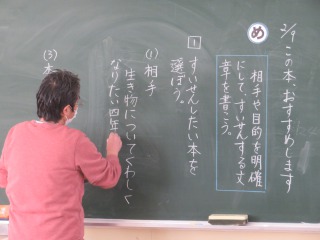 2/9 この本、おすすめします
め
相手や目的を明確
にして、すいせんする文
章を書こう。
1 すいせんしたい本を
選ぼう。
(1) 相手
生き物についてくわしく
なりたい四年
(3) 本